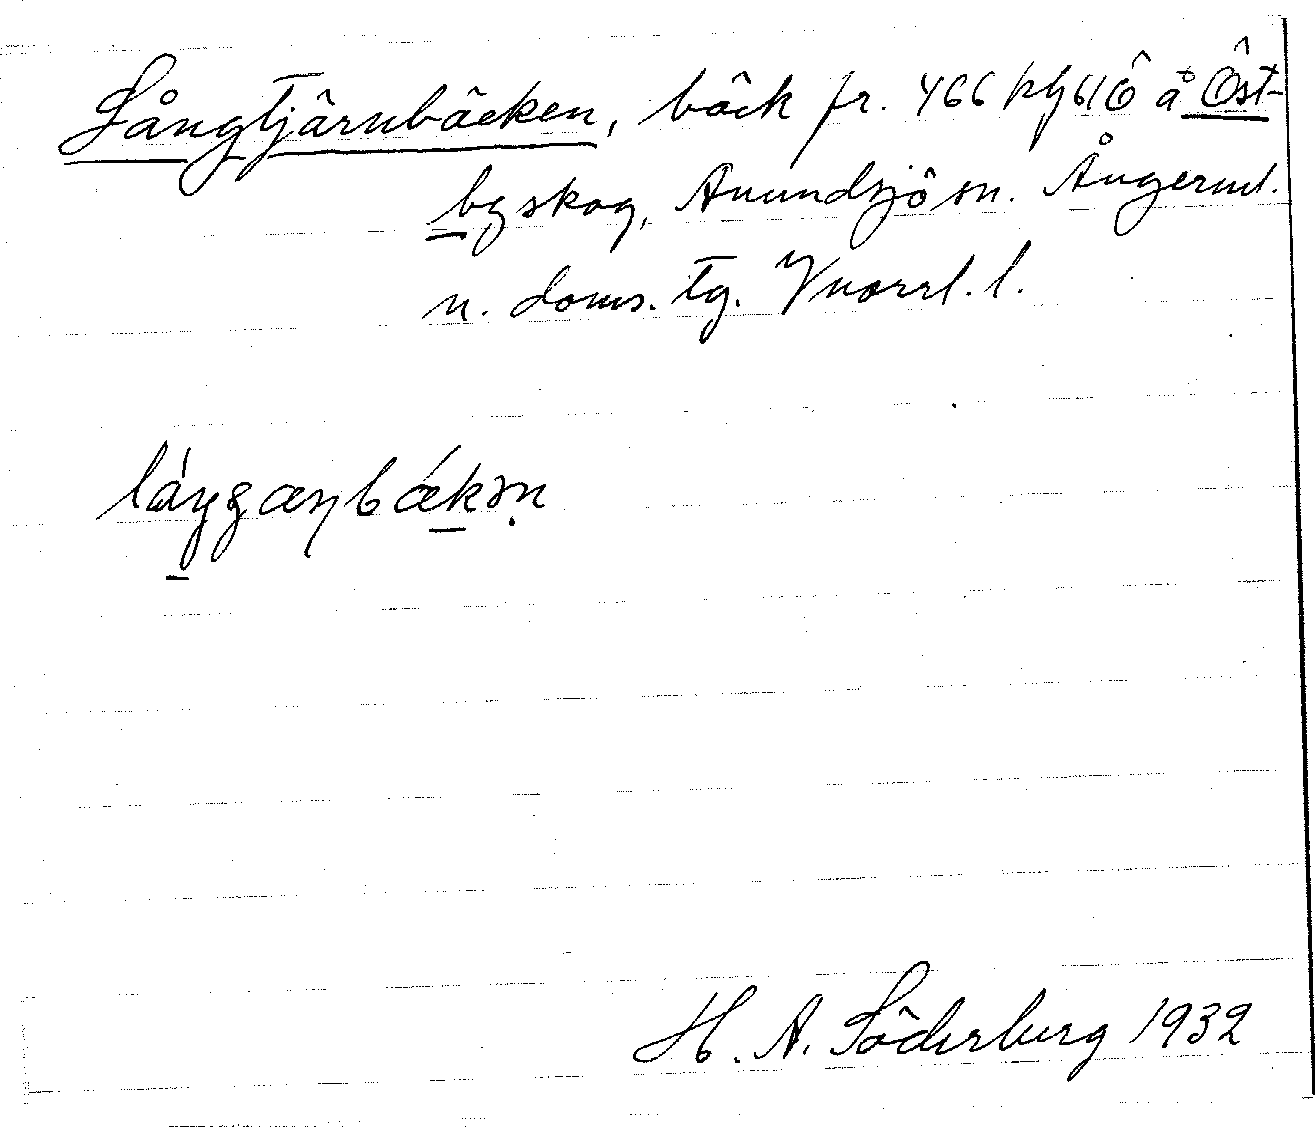 Långtjärnbäcken, bäck fr. 466 på 61Ö å Öst-
byskog, Anundsjö sn. Ångerml.
n. doms. tg. Vnorrl. l.
H. A. Söderberg 1932